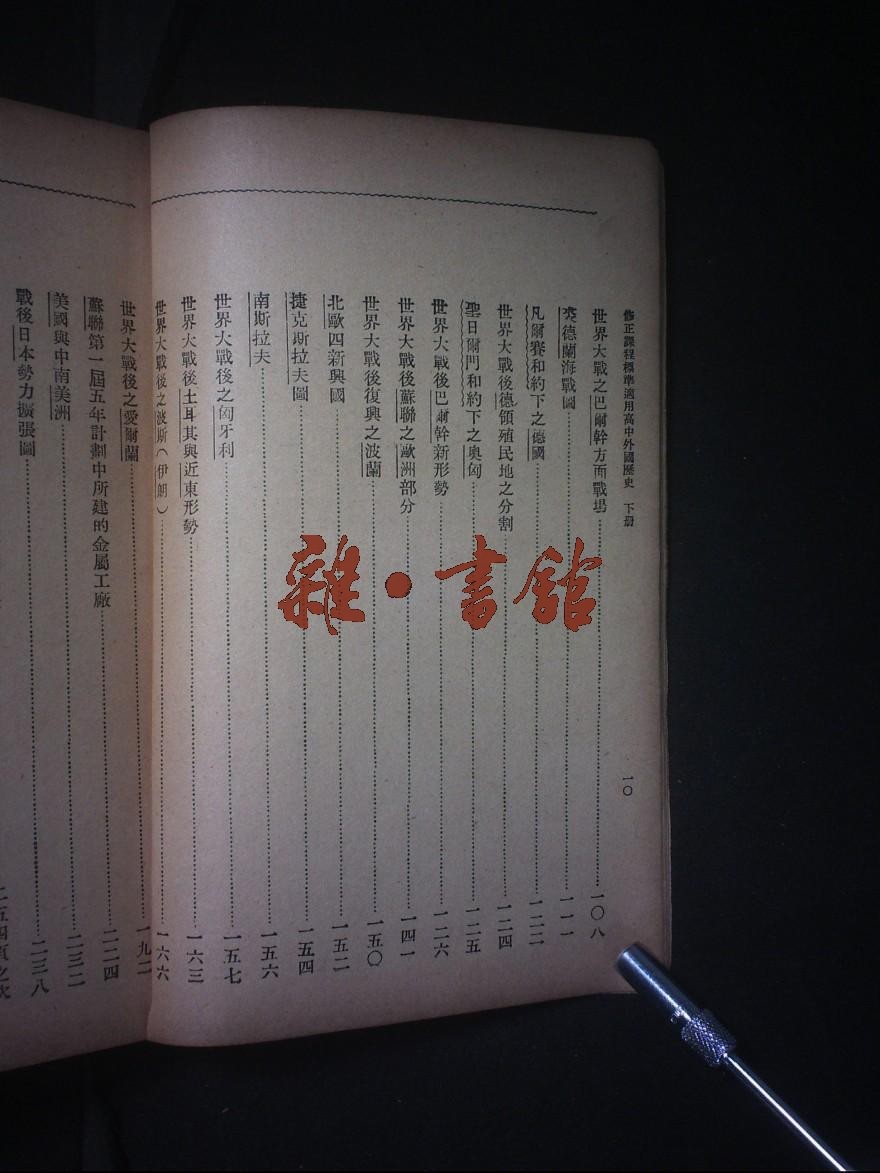 修正課程標準適用高中外國歷史　下册
一〇
世界大戰之巴爾幹方面戰場……一〇八
裘德蘭海戰圖……一一一
凡爾賽和約下之德國……一二二
世界大戰後德領殖民地之分割……一二四
聖日爾門和約下之奧匈……一二五
世界大戰後巴爾幹新形勢……一二六
世界大戰後蘇聯之歐洲部分……一四一
世界大戰後復興之波蘭……一五〇
北歐四新興國……一五二
捷克斯拉夫圖……一五四
南斯拉夫……一五六
世界大戰後之匈牙利……一五七
世界大戰後土耳其與近東形勢……一六三
世界大戰後之波斯（伊朗）……一六六
世界大戰後之愛爾蘭……一九二
蘇聯第一屆五年計劃中所建的金屬工廠……二二四
美國與中南美洲……二三二
戰後日本勢力擴張圖……二三八
二五四頁之次
雜·書館